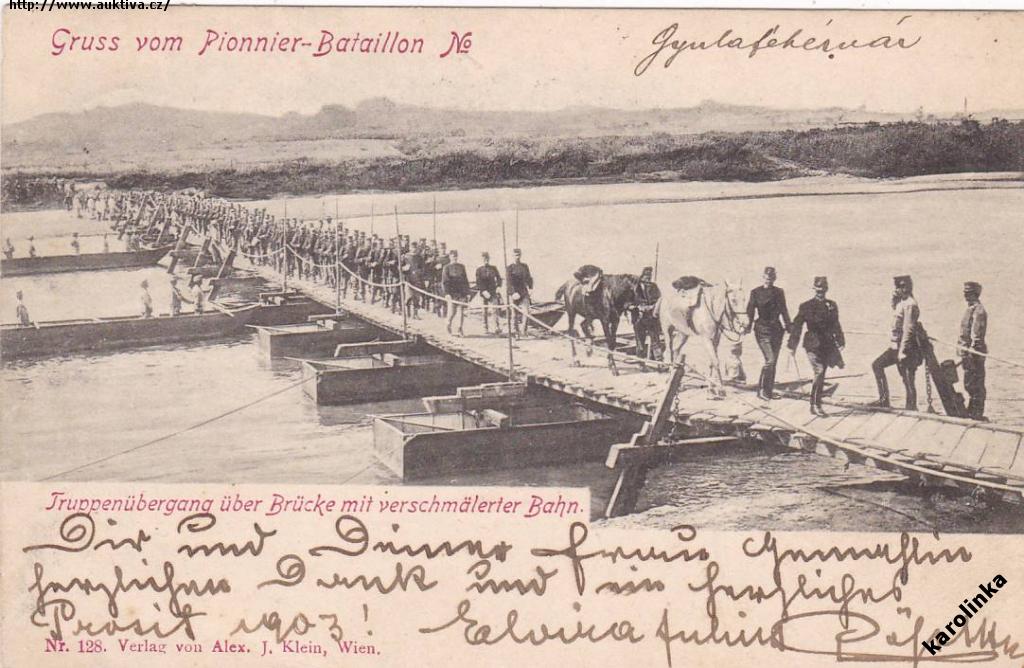 http://www.auktiva.cz/
Gruss vom Pionnier-Bataillon No
Gyulafehérvár
Truppenübergang über Brücke mit verschmälerter Bahn.
Dir und Deiner Frau Gemahlin
herzlichen Dank und ein herzliches
Prosit 1903! Elvira
Nr. 128. Verlag von Alex. J. Klein, Wien.
karolinka